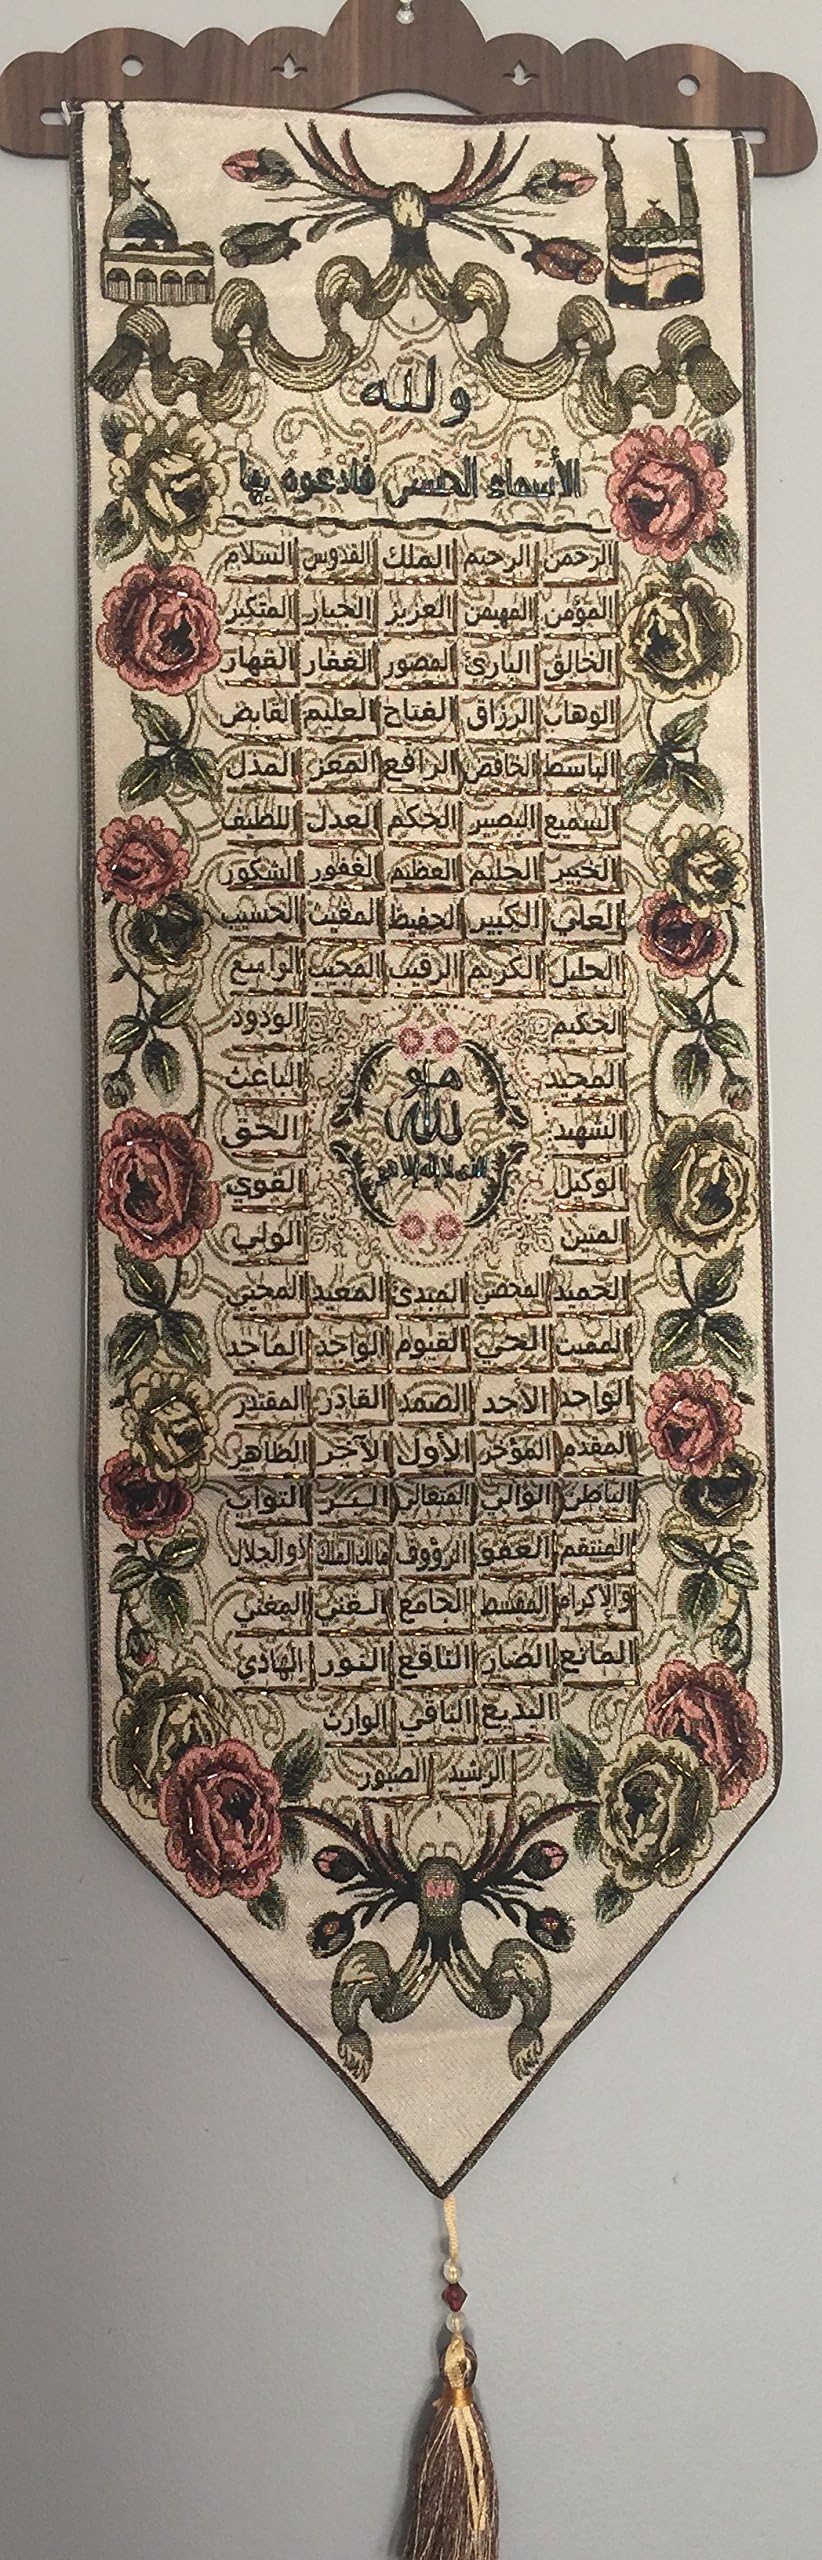 ولله
الأسماء الحسنى فادعوه بها
الرحمن الرحيم الملك القدوس السلام
المؤمن المهيمن العزيز الجبار المتكبر
الخالق البارئ المصور الغفار القهار
الوهاب الرزاق الفتاح العليم القابض
الباسط الخافض الرافع المعز المذل
السميع البصير الحكم العدل اللطيف
الخبير الحليم العظيم الغفور الشكور
العلي الكبير الحفيظ المقيت الحسيب
الجليل الكريم الرقيب المجيب الواسع
الحكيم الودود
المجيد الباعث
الله
الشهيد الحق
الذي لا إله إلا هو
الوكيل القوي
المتين الولي
الحميد المحصي المبدئ المعيد المحيي
المميت الحي القيوم الواجد الماجد
الواحد الأحد الصمد القادر المقتدر
المقدم المؤخر الأول الآخر الظاهر
الباطن الوالي المتعالي البر التواب
المنتقم العفو الرؤوف مالك الملك ذو الجلال
والإكرام المقسط الجامع الغني المغني
المانع الضار النافع النور الهادي
البديع الباقي الوارث
الرشيد الصبور